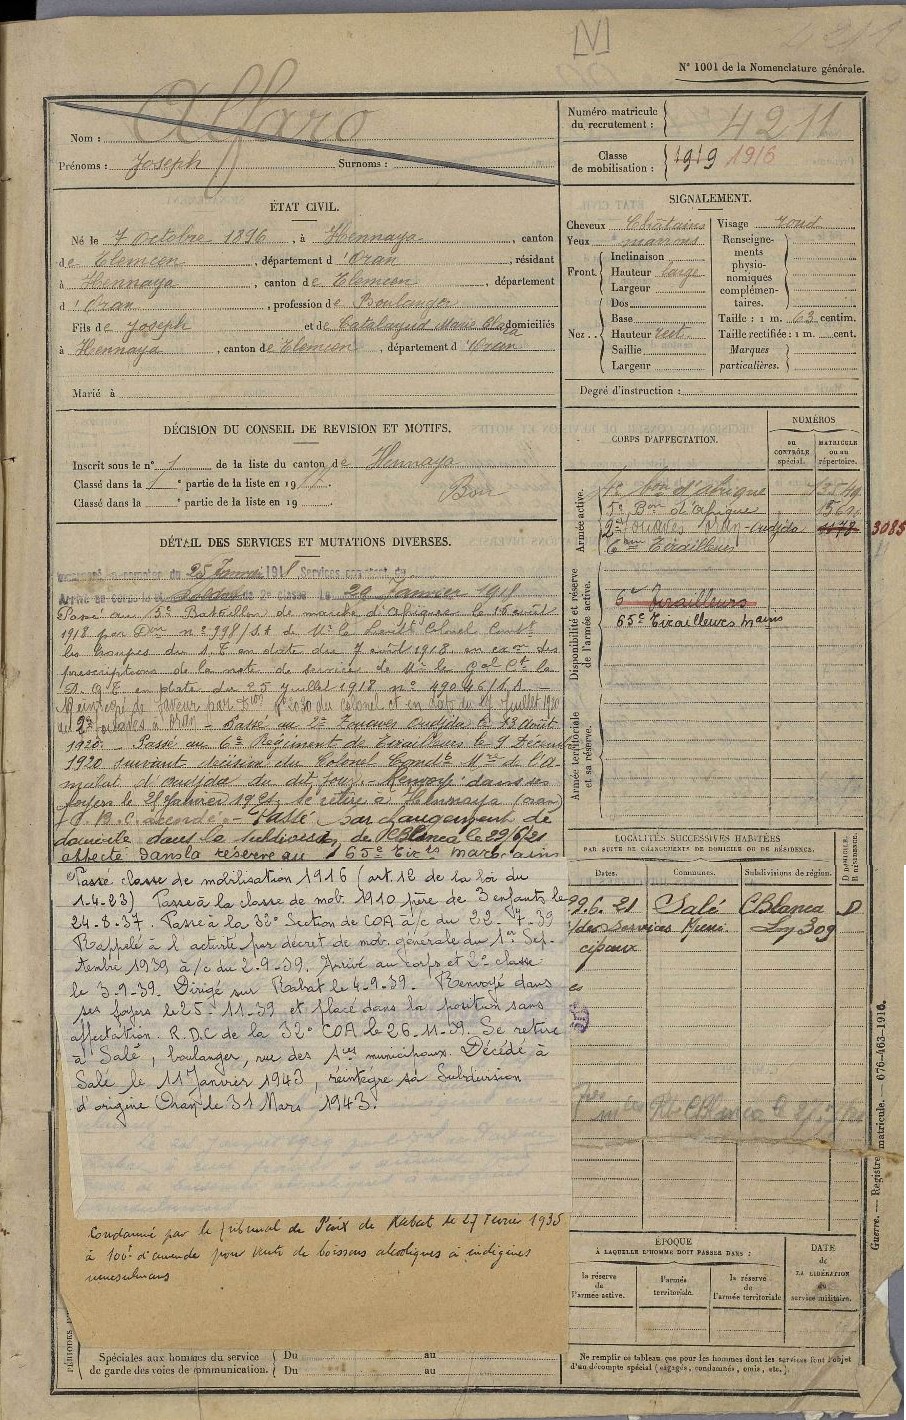 [V]
N° 1001 de la Nomenclature générale.
Nom : Alfaro
Prénoms : Joseph Surnoms :
Numéro matricule du recrutement : 4211
Classe de mobilisation : 1919 1916
ÉTAT CIVIL.
Né le 7 Octobre 1896, à Hennaya, canton
de Tlemcen, département d'Oran, résidant
à Hennaya, canton de Tlemcen, département
d'Oran, profession de Boulanger
Fils de Joseph et de Catalayud Marie Clara domiciliés
à Hennaya, canton de Tlemcen, département d'Oran
Marié à
SIGNALEMENT.
Cheveux Châtains
Yeux marrons
Front. Inclinaison
Hauteur large
Largeur
Nez. Dos
Base
Hauteur rect.
Saillie
Largeur
Visage rond
Renseignements physionomiques complémentaires.
Taille : 1 m. 63 centim.
Taille rectifiée : 1 m. cent.
Marques particulières.
Degré d'instruction :
DÉCISION DU CONSEIL DE REVISION ET MOTIFS.
Inscrit sous le n° 1 de la liste du canton de Hennaya
Classé dans la 1 e partie de la liste en 1917. Bon
Classé dans la e partie de la liste en 19
CORPS D'AFFECTATION.
NUMÉROS
au CONTRÔLE spécial.
MATRICULE ou au répertoire.
Armée active.
4e Bon d'Afrique 13549
5e Bon d'Afrique
2e Zouaves Oran - Oudjda 1178 3085
6ème Tirailleurs
Disponibilité et réserve de l'armée active.
6e Tirailleurs
65e Tirailleurs Mains
Armée territoriale et sa réserve.
DÉTAIL DES SERVICES ET MUTATIONS DIVERSES.
Incorporé à compter du 25 Janvier 1918 Services comptent du
Arrivé au corps le et soldat de 2e classe le 29 Janvier 1918
Passé au 5e Bataillon de marche d'Afrique le 16 avril
1918 par Don n° 798/S.A de Mr le Lieutt Colonel Commt
les troupes du S.T en date du 7 avril 1918 en exon des
prescriptions de la note de service de Mr le Gal Ct la
D.G.T en date du 25 Juillet 1918 n° 49046/S.A
Réintégré de faveur par Don n° 2030 du Colonel
au 2e Zouaves à Oran - Passé au 2e Zouaves Oudjda le 13 Août
1920. - Passé au 6e Régiment de Tirailleurs le 9 Décem
1920 suivant décision du Colonel Comdt Mre de l'A
malat d'Oudjda du dit jour. - Renvoyé dans ses
foyers le 21 Janvier 1921, se retire à Hennaya (Oran)
C. B. C. accordé - Passé par changement de
domicile dans la subdivision de CBlanca le 29/6/21
affecté dans la réserve au 65e Tirs marocains
Passé classe de mobilisation 1916 (art. 12 de la loi du
1-4-23) Passe à la classe de mob. 1910 père de 3 enfants le
24-8-37. Passe à la 32° Section de COA à/c du 22-7-39
Rappelé à l'activité par décret de mob. générale du 1er Sep-
tembre 1939 à/c du 2-9-39. Arrivé au corps et 2° classe
le 3-9-39. Dirigé sur Rabat le 4-9-39. Renvoyé dans
ses foyers le 25-11-39 et placé dans la position sans
affectation. R.D.C de la 32° COA le 26-11-39. Se retire
à Salé, boulanger, rue des Sces municipaux. Décédé à
Salé le 11 Janvier 1943, réintègre sa Subdivision
d'origine Oran le 31 Mars 1943.
Condamné par le Tribunal de Paix de Rabat le 27 Février 1935
à 100f d'amende pour vente de boissons alcooliques à indigènes
musulmans
LOCALITÉS SUCCESSIVES HABITÉES
PAR SUITE DE CHANGEMENTS DE DOMICILE OU DE RÉSIDENCE.
Dates. Communes. Subdivisions de région. D domicile. R résidence.
29.6.21 Salé CBlanca D
des Services Muni
cipaux
ÉPOQUE
À LAQUELLE L'HOMME DOIT PASSER DANS :
la réserve de l'armée active.
l'armée territoriale.
la réserve de l'armée territoriale
DATE DE LA LIBÉRATION du service militaire.
Spéciales aux hommes du service de garde des voies de communication.
Du au
Du au
Ne remplir ce tableau que pour les hommes dont les services font l'objet
d'un décompte spécial (engagés, condamnés, omis, etc.).
Guerre. — Registre matricule. 676-463-1916.